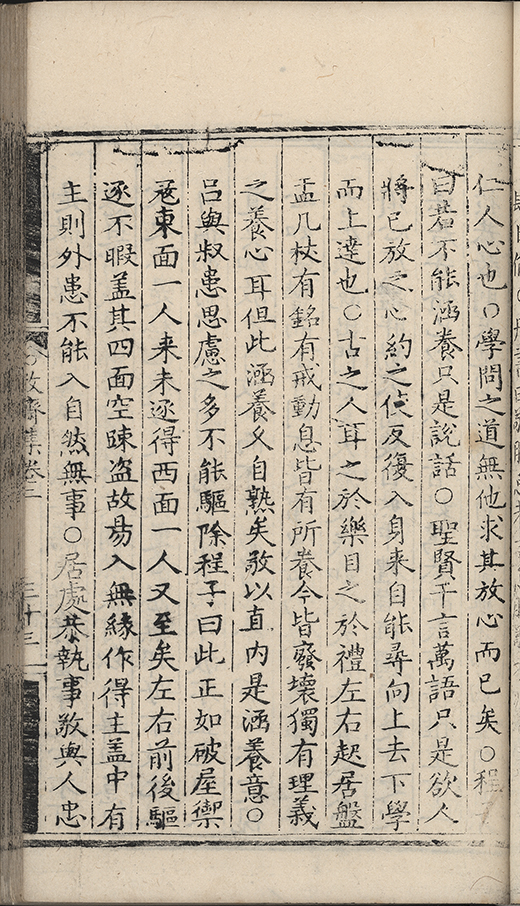 仁人心也○學問之道無他求其放心而已矣○程
曰若不能涵養只是說話○聖賢千言萬語只是欲人
將已放之心約之使反復入身来自能尋向上去下學
而上達也○古之人耳之於樂目之於禮左右起居盤
盂几杖有銘有戒動息皆有所養今皆廢壞獨有理義
之養心耳但此涵養久自熟矣敬以直内是涵養意○
吕與叔患思慮之多不能驅除程子曰此正如破屋禦
冦東面一人来未逐得西面一人又至矣左右前後驅
逐不暇盖其四面空踈盗故昜入無緣作得主盖中有
主則外患不能入自然無事○居處恭執事敬與人忠
齋集卷三
三十三